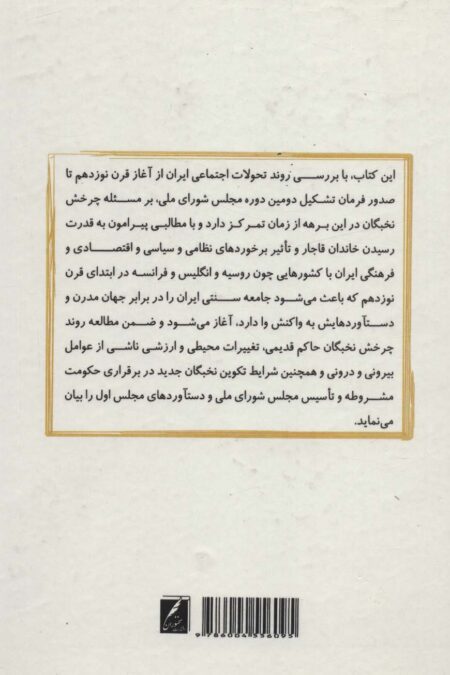 این کتاب، با بررسی روند تحولات اجتماعی ایران از آغاز قرن نوزدهم تا
صدور فرمان تشکیل دومین دوره مجلس شورای ملی، بر مسئله چرخش
نخبگان در این برهه از زمان تمرکز دارد و با مطالبی پیرامون به قدرت
رسیدن خاندان قاجار و تأثیر برخوردهای نظامی و سیاسی و اقتصادی و
فرهنگی ایران با کشورهایی چون روسیه و انگلیس و فرانسه در ابتدای قرن
نوزدهم که باعث می‌شود جامعه سنتی ایران را در برابر جهان مدرن و
دستآوردهایش به واکنش وا دارد، آغاز می‌شود و ضمن مطالعه روند
چرخش نخبگان حاکم قدیمی، تغییرات محیطی و ارزشی ناشی از عوامل
بیرونی و درونی و همچنین شرایط تکوین نخبگان جدید در برقراری حکومت
مشروطه و تأسیس مجلس شورای ملی و دستآوردهای مجلس اول را بیان
می‌نماید.
9786004556095